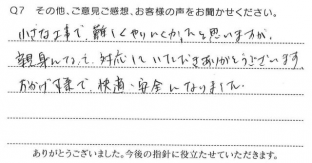 Q7 その他、ご意見ご感想、お客様の声をお聞かせください。
小さな工事で難しくやりにくかったと思いますが、
親身になって対応していただきありがとうございます。
おかげ様で、快適・安全になりました。
ありがとうございました。今後の指針に役立たせていただきます。